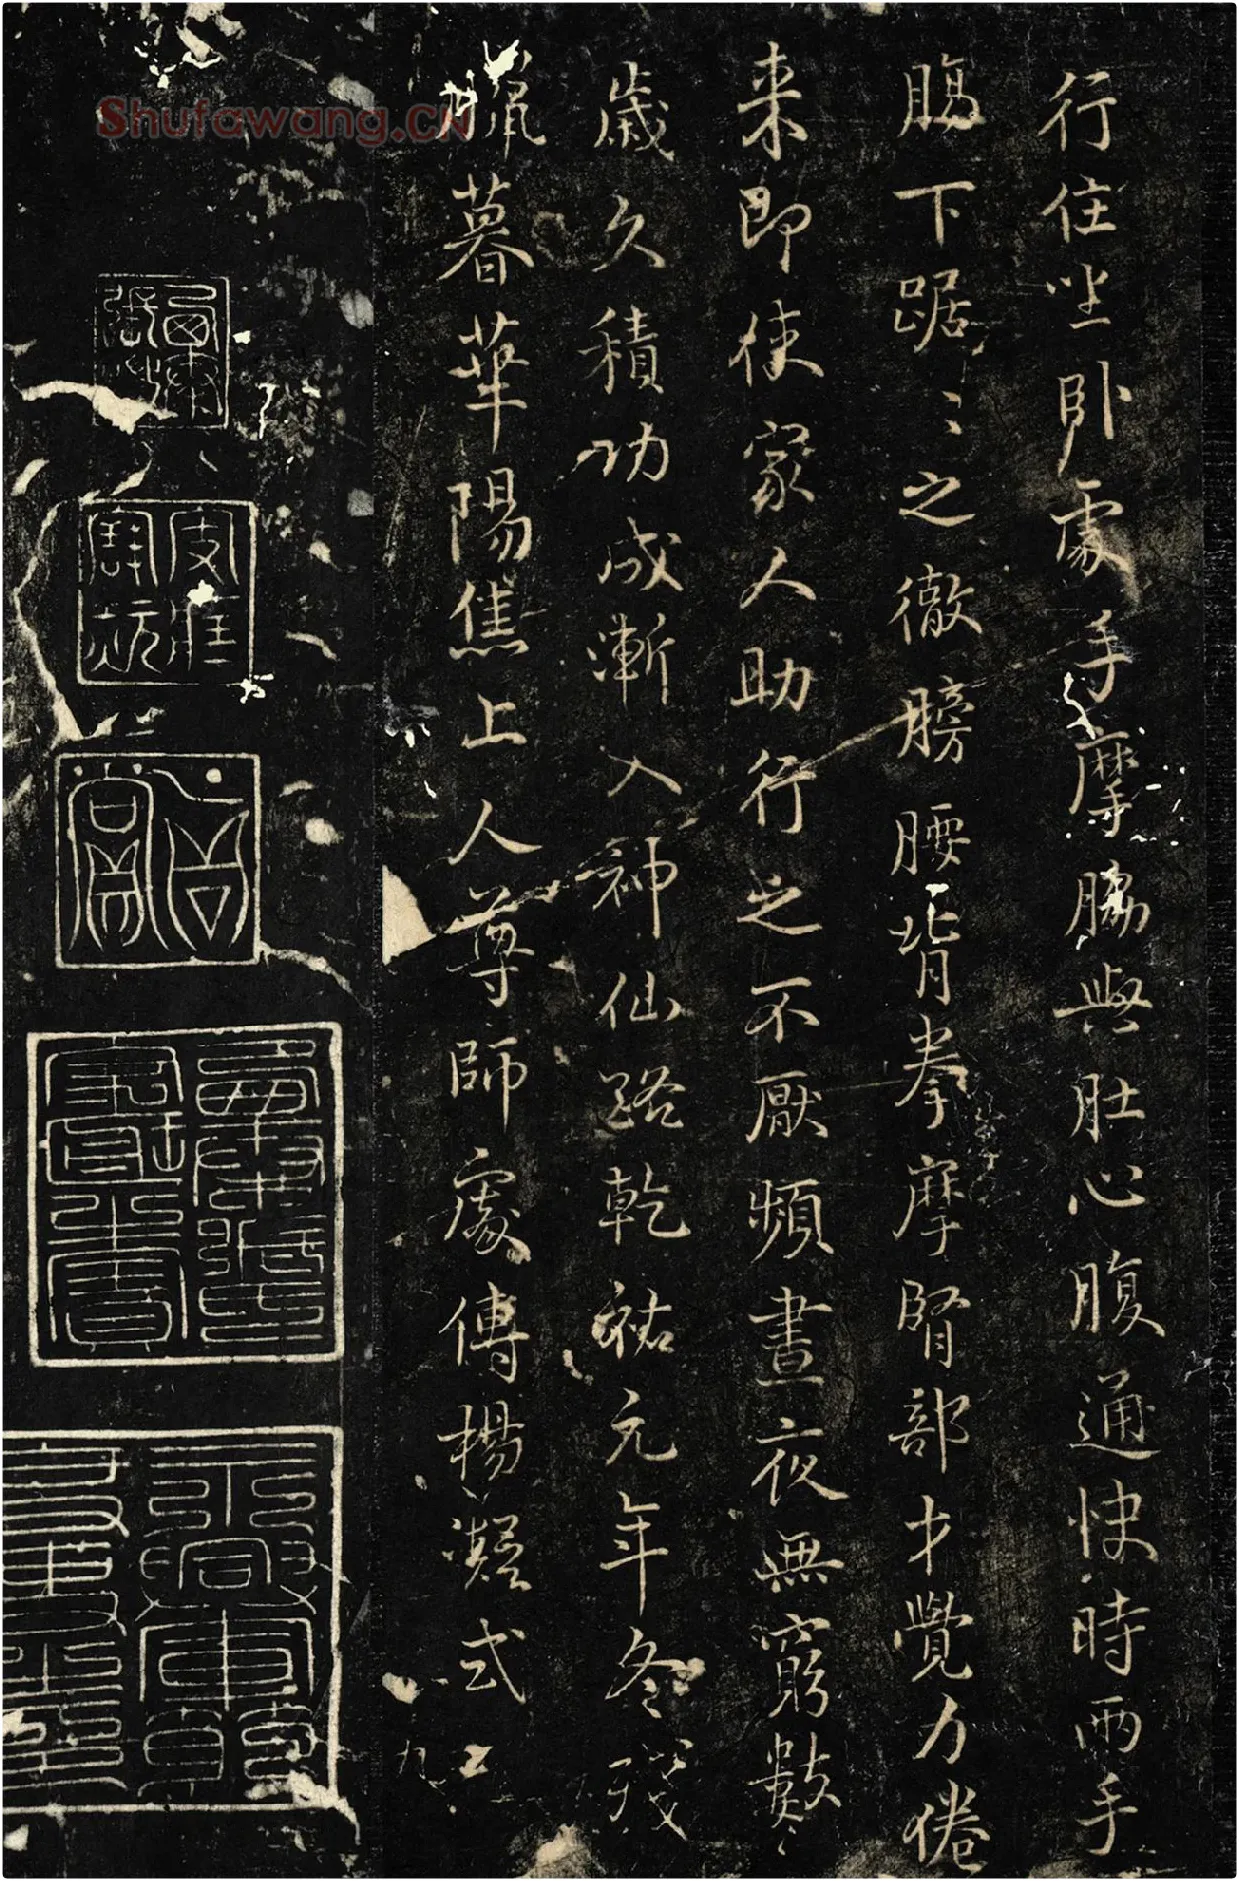 行住坐臥處手摩脇與肚心腹通快時兩手
腸下踞〻之徹膀腰背拳摩腎部才覺力倦
来即使家人助行之不厭頻晝夜無窮數
歲久積功成漸入神仙路乾祐元年冬殘
臘暮華陽焦上人尊師處傳楊凝式
Shufawang.CN